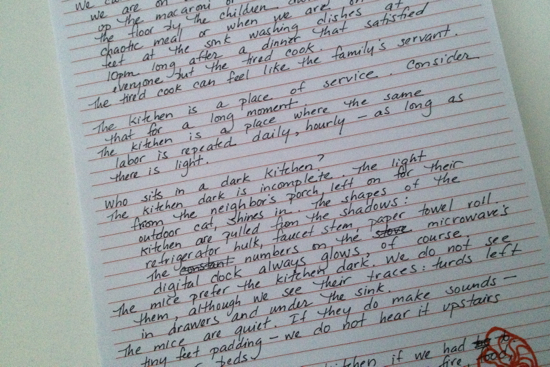 we are on
op the macaroni or
the floor by the children
chaotic meal or when we are on
feet at the sink washing dishes at
10pm long after a dinner that satisfied
everyone but the tired cook.
The tired cook can feel like the family's servant.
The kitchen is a place of service. Consider
that for a long moment.
The kitchen is a place where the same
labor is repeated daily, hourly – as long as
there is light.
Who sits in a dark kitchen?
The kitchen dark is incomplete. The light
from the neighbor's porch, left on for their
outdoor cat, shines in. The shapes of the
kitchen are pulled from the shadows:
refrigerator hulk, faucet stem, paper towel roll.
The constant numbers on the stove microwave's
digital clock always glows, of course.
The mice prefer the kitchen dark. We do not see
them, although we see their traces: turds left
in drawers and under the sink.
The mice are quiet. If they do make sounds –
tiny feet padding – we do not hear it upstairs
beds.
kitchen if we had to
fire,